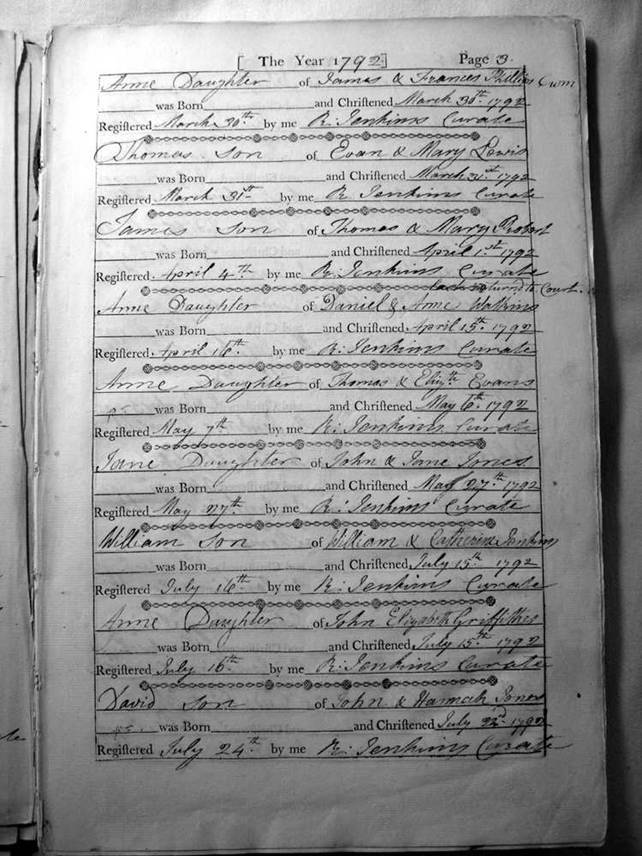 [ The Year 1792 ] Page 3.
Anne Daughter of James & Frances Phillips Cwm
was Born and Chriſtened March 30th. 1792
Regiſtered March 30th. by me R. Jenkins Curate
Thomas Son of Evan & Mary Lewis
was Born and Chriſtened March 31st. 1792
Regiſtered March 31st. by me R Jenkins Curate
James Son of Thomas & Mary Probert
was Born and Chriſtened April 1.st 1792
Regiſtered April 4th by me R. Jenkins Curate
last returned to Court.
Anne Daughter of Daniel & Anne Watkins
was Born and Chriſtened April 15th. 1792
Regiſtered April 16th. by me R: Jenkins Curate
Anne Daughter of Thomas & Elizth Evans
was Born and Chriſtened May 6th. 1792
Regiſtered May 7th by me R: Jenkins Curate
Jane Daughter of John & Jane Jones
was Born and Chriſtened May 27th. 1792
Regiſtered May 27th by me R: Jenkins Curate
William Son of William & Catherine Jenkins
was Born and Chriſtened July 15th. 1792
Regiſtered July 16th. by me R: Jenkins Curate
Anne Daughter of John Elizabeth Griffithes
was Born and Chriſtened July 15th. 1792
Regiſtered July 16th by me R: Jenkins Curate
David Son of John & Hannah Jones
was Born and Chriſtened July 1792
Regiſtered July 24th. by me R: Jenkins Curate